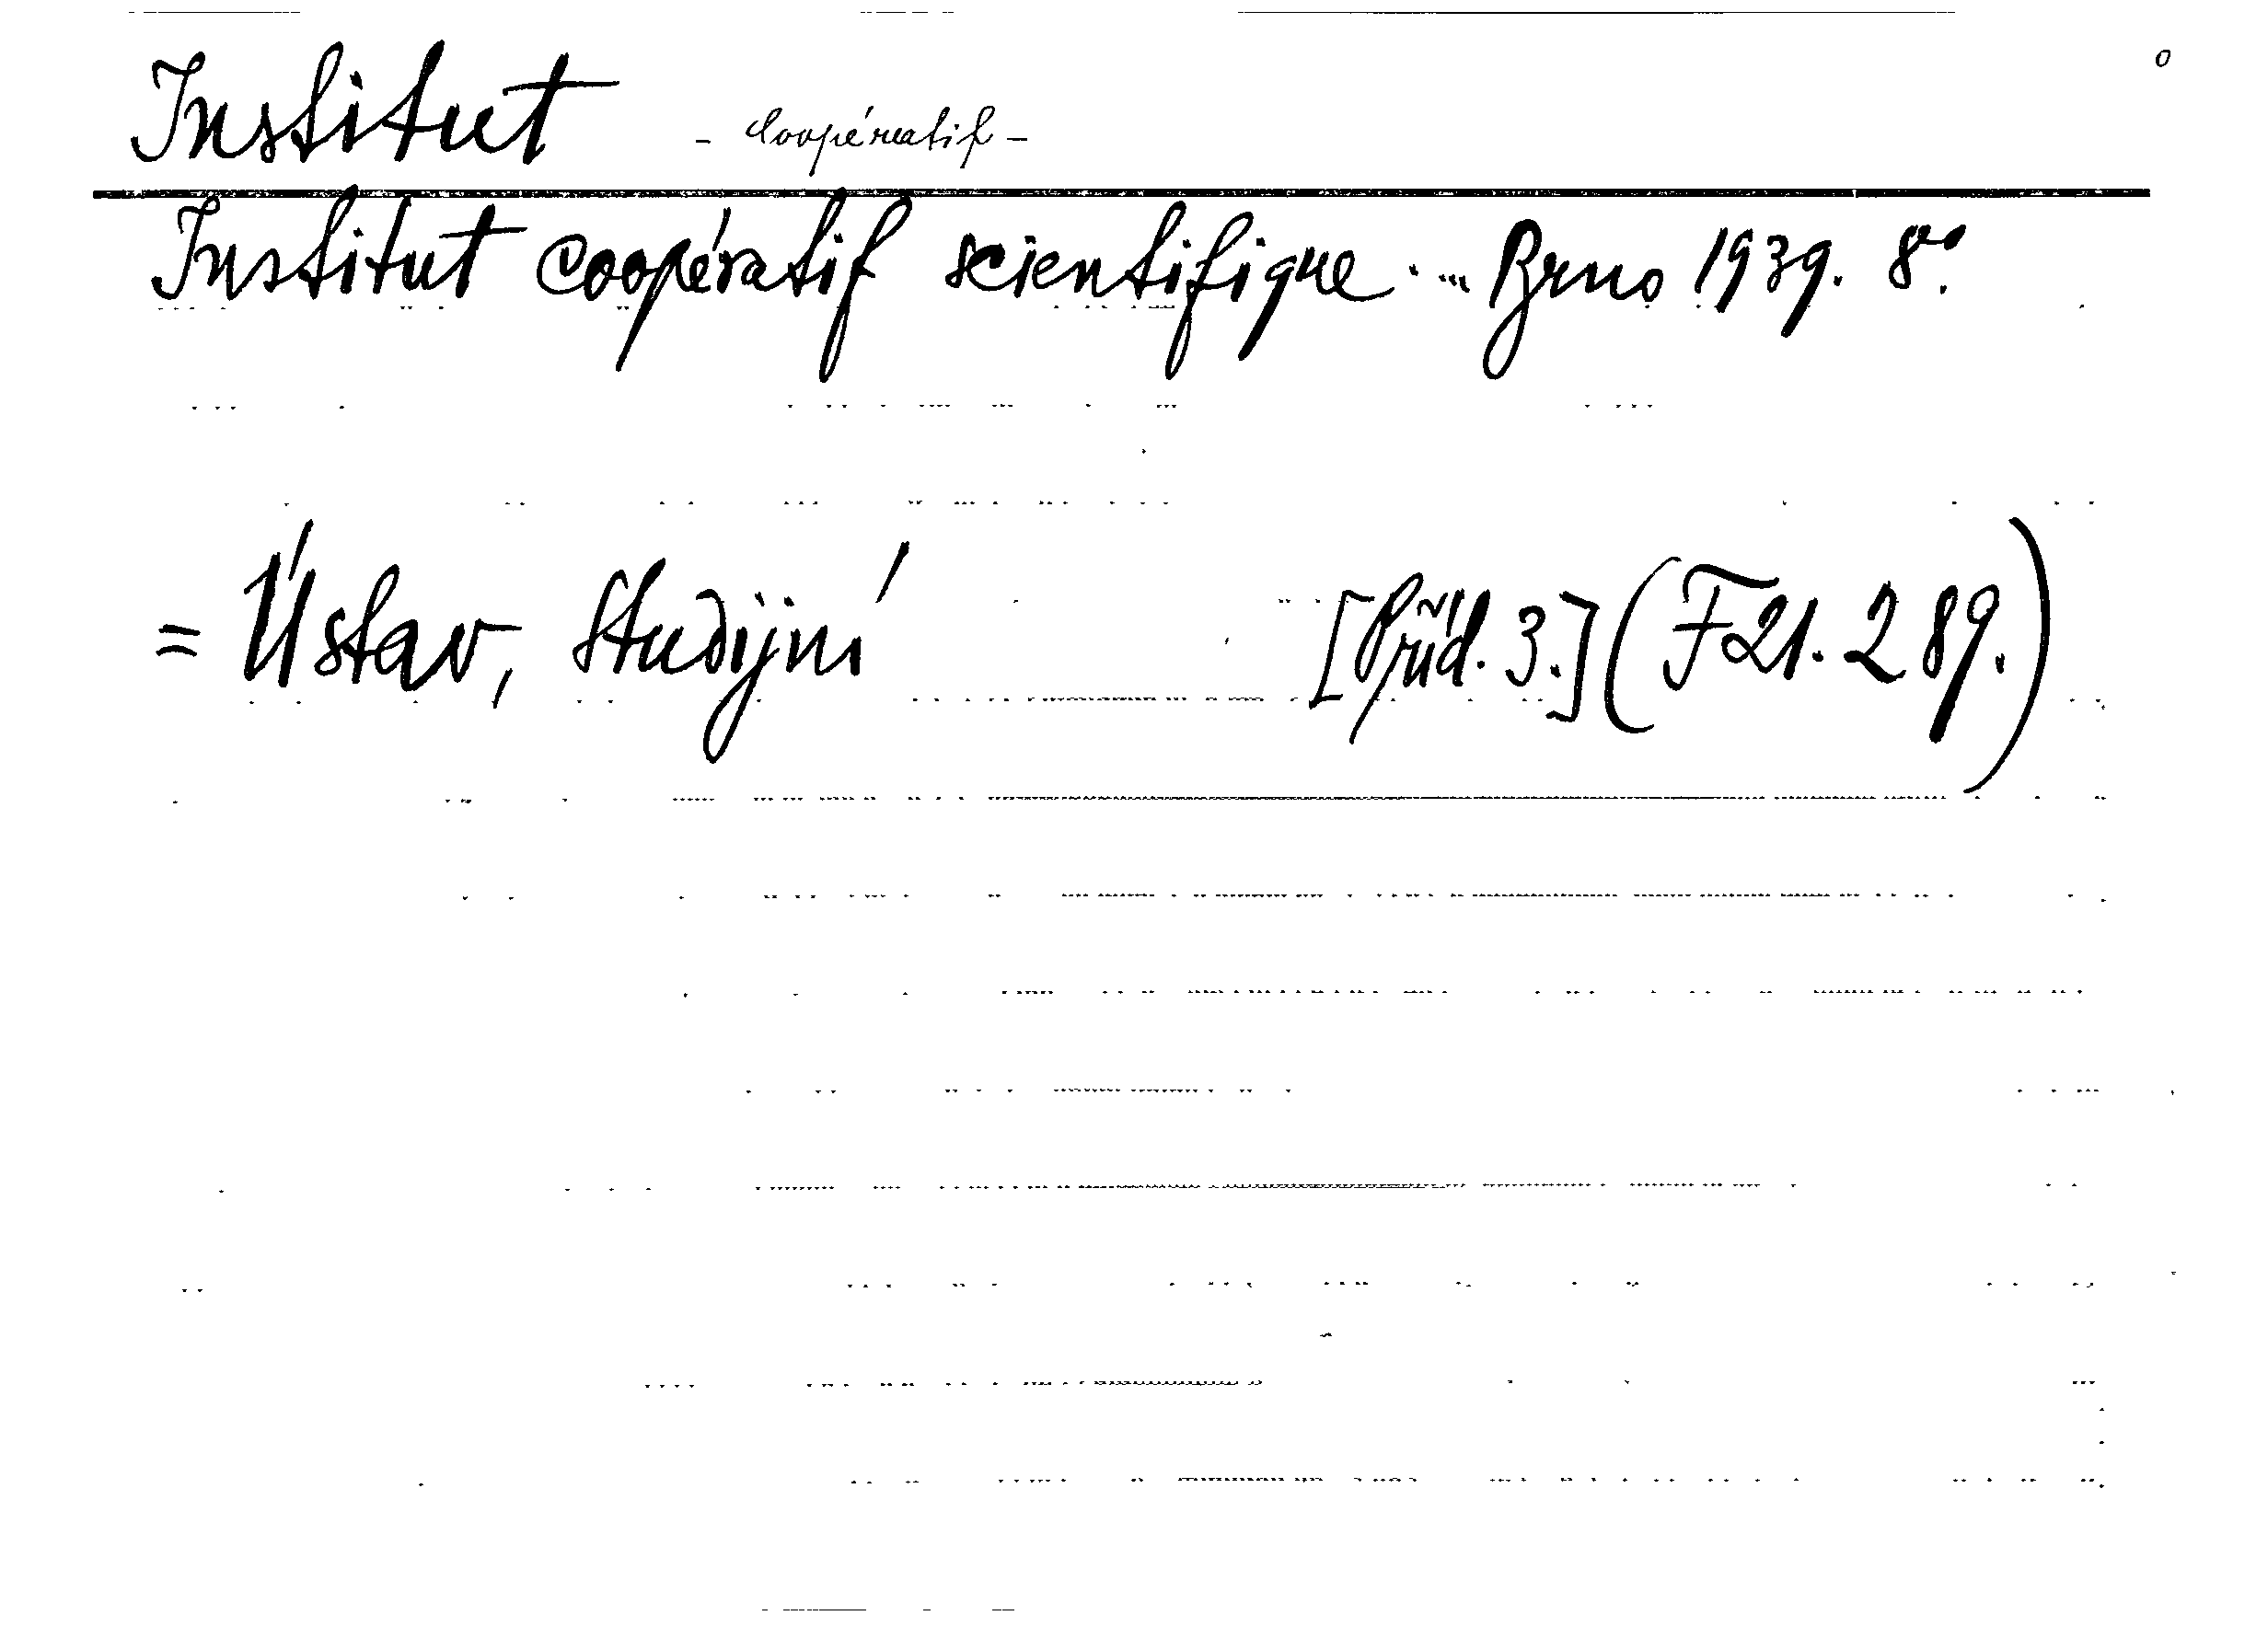 Institut - coopératif - o
Institut coopératif scientifique ... Brno 1939. 8°.
= Ústav, studijní [Příd. 3.] (F21.289.)